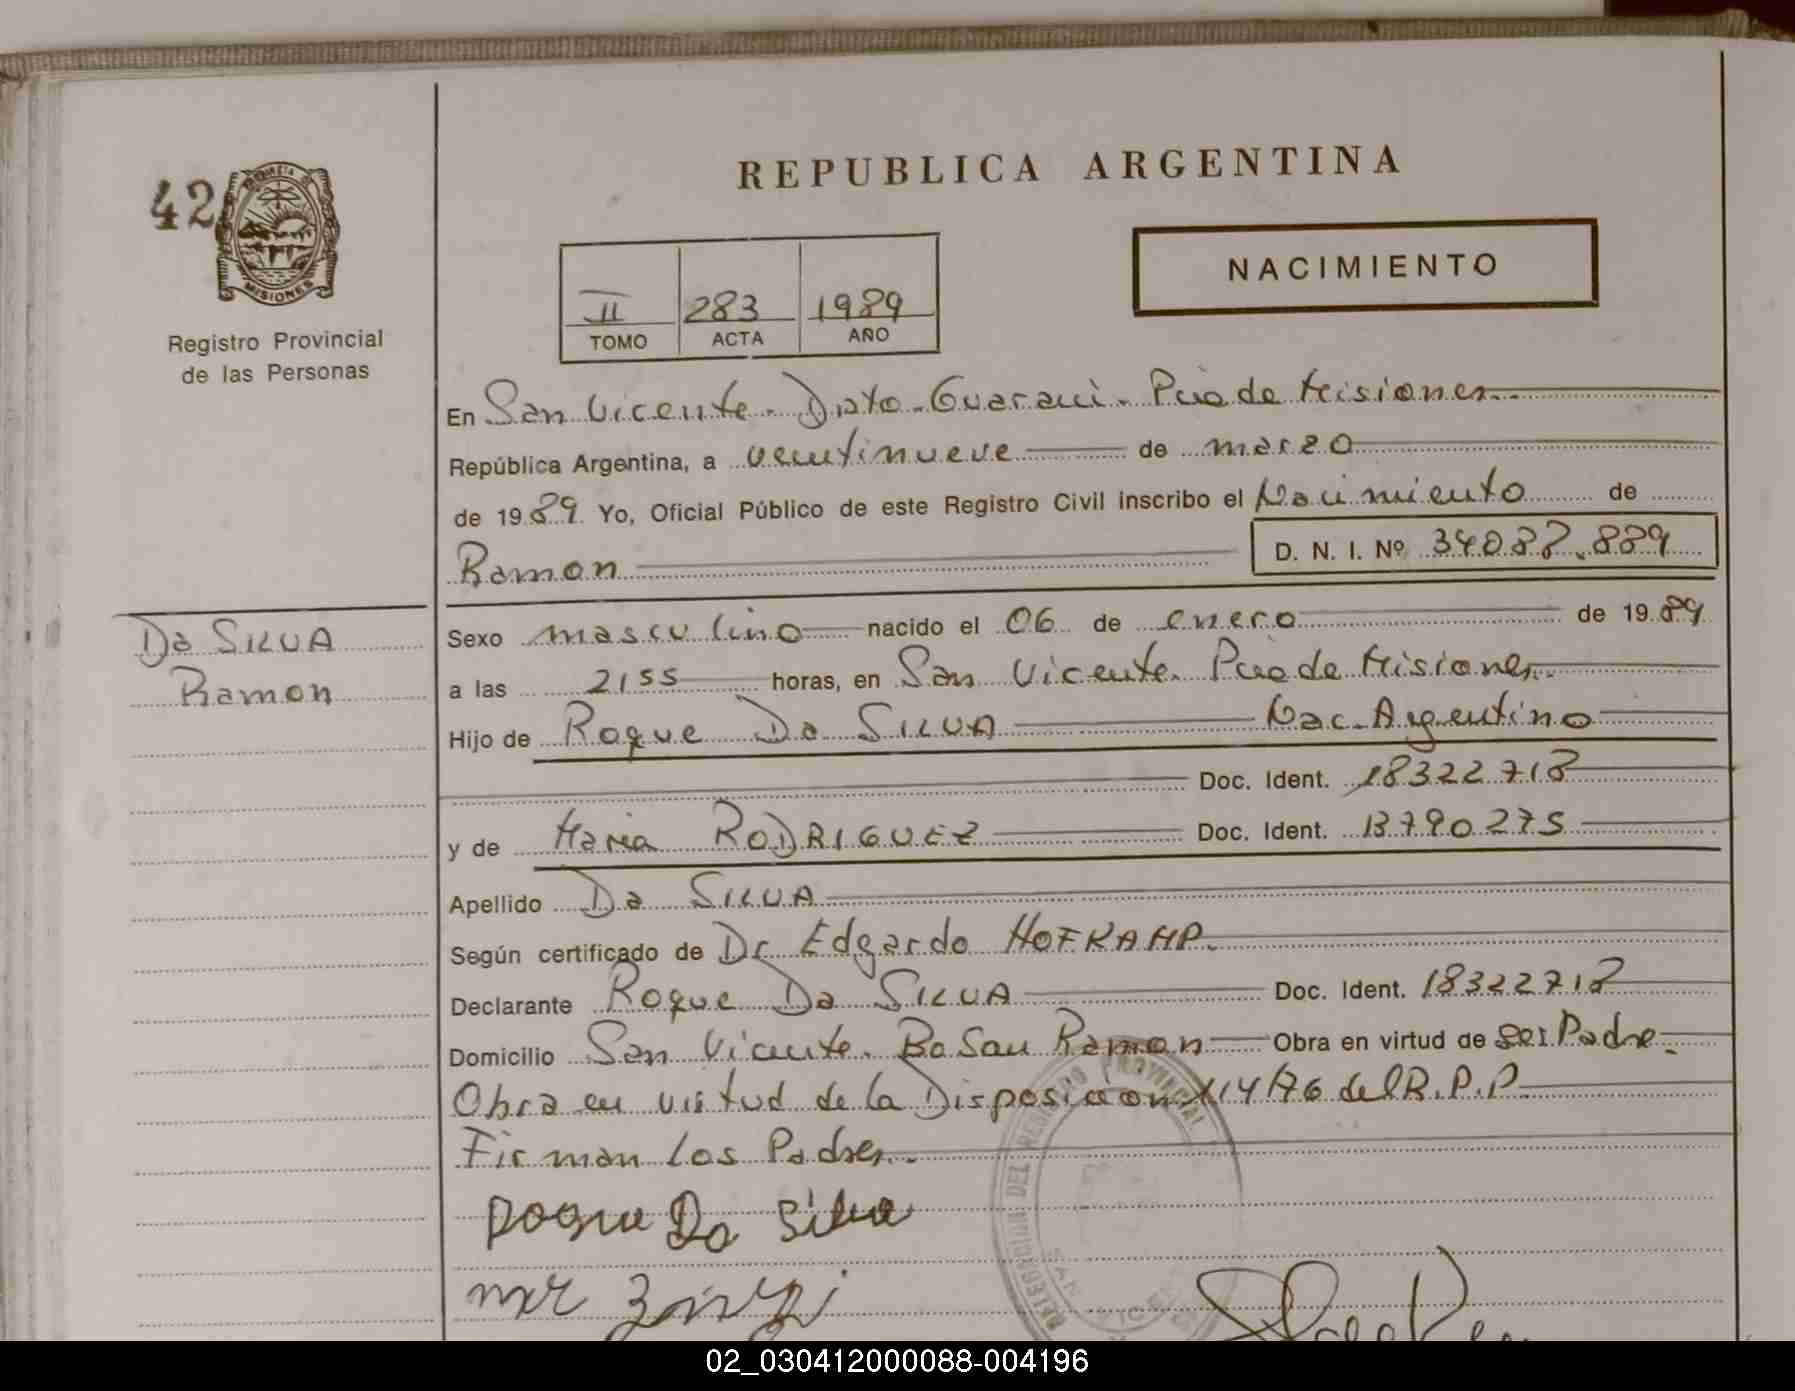 42
MISIONES
Registro Provincial
de las Personas
REPUBLICA ARGENTINA
NACIMIENTO
II 283 1989
TOMO ACTA AÑO
En San Vicente. Dpto. Guarani. Pcia de Misiones.
República Argentina, a veintinueve de marzo
de 1989 Yo, Oficial Público de este Registro Civil inscribo el Nacimiento de
Ramon D. N. I. Nº 34087.889
Da SILVA
Ramon
Sexo masculino nacido el 06 de enero de 1989
a las 2155 horas, en San Vicente. Pcia de Misiones.
Hijo de Roque Da SILVA Nac. Argentino
Doc. Ident. 18322718
y de Maria RODRIGUEZ Doc. Ident. 13790275
Apellido Da SILVA
Según certificado de Dr Edgardo HOFKAMP.
Declarante Roque Da SILVA Doc. Ident. 18322718
Domicilio San Vicente. Bo San Ramon Obra en virtud de ser Padre.
Obra en virtud de la Disposicion 114/76 del R.P.P
Firman los Padres.
Roque Da Silva
02_030412000088-004196